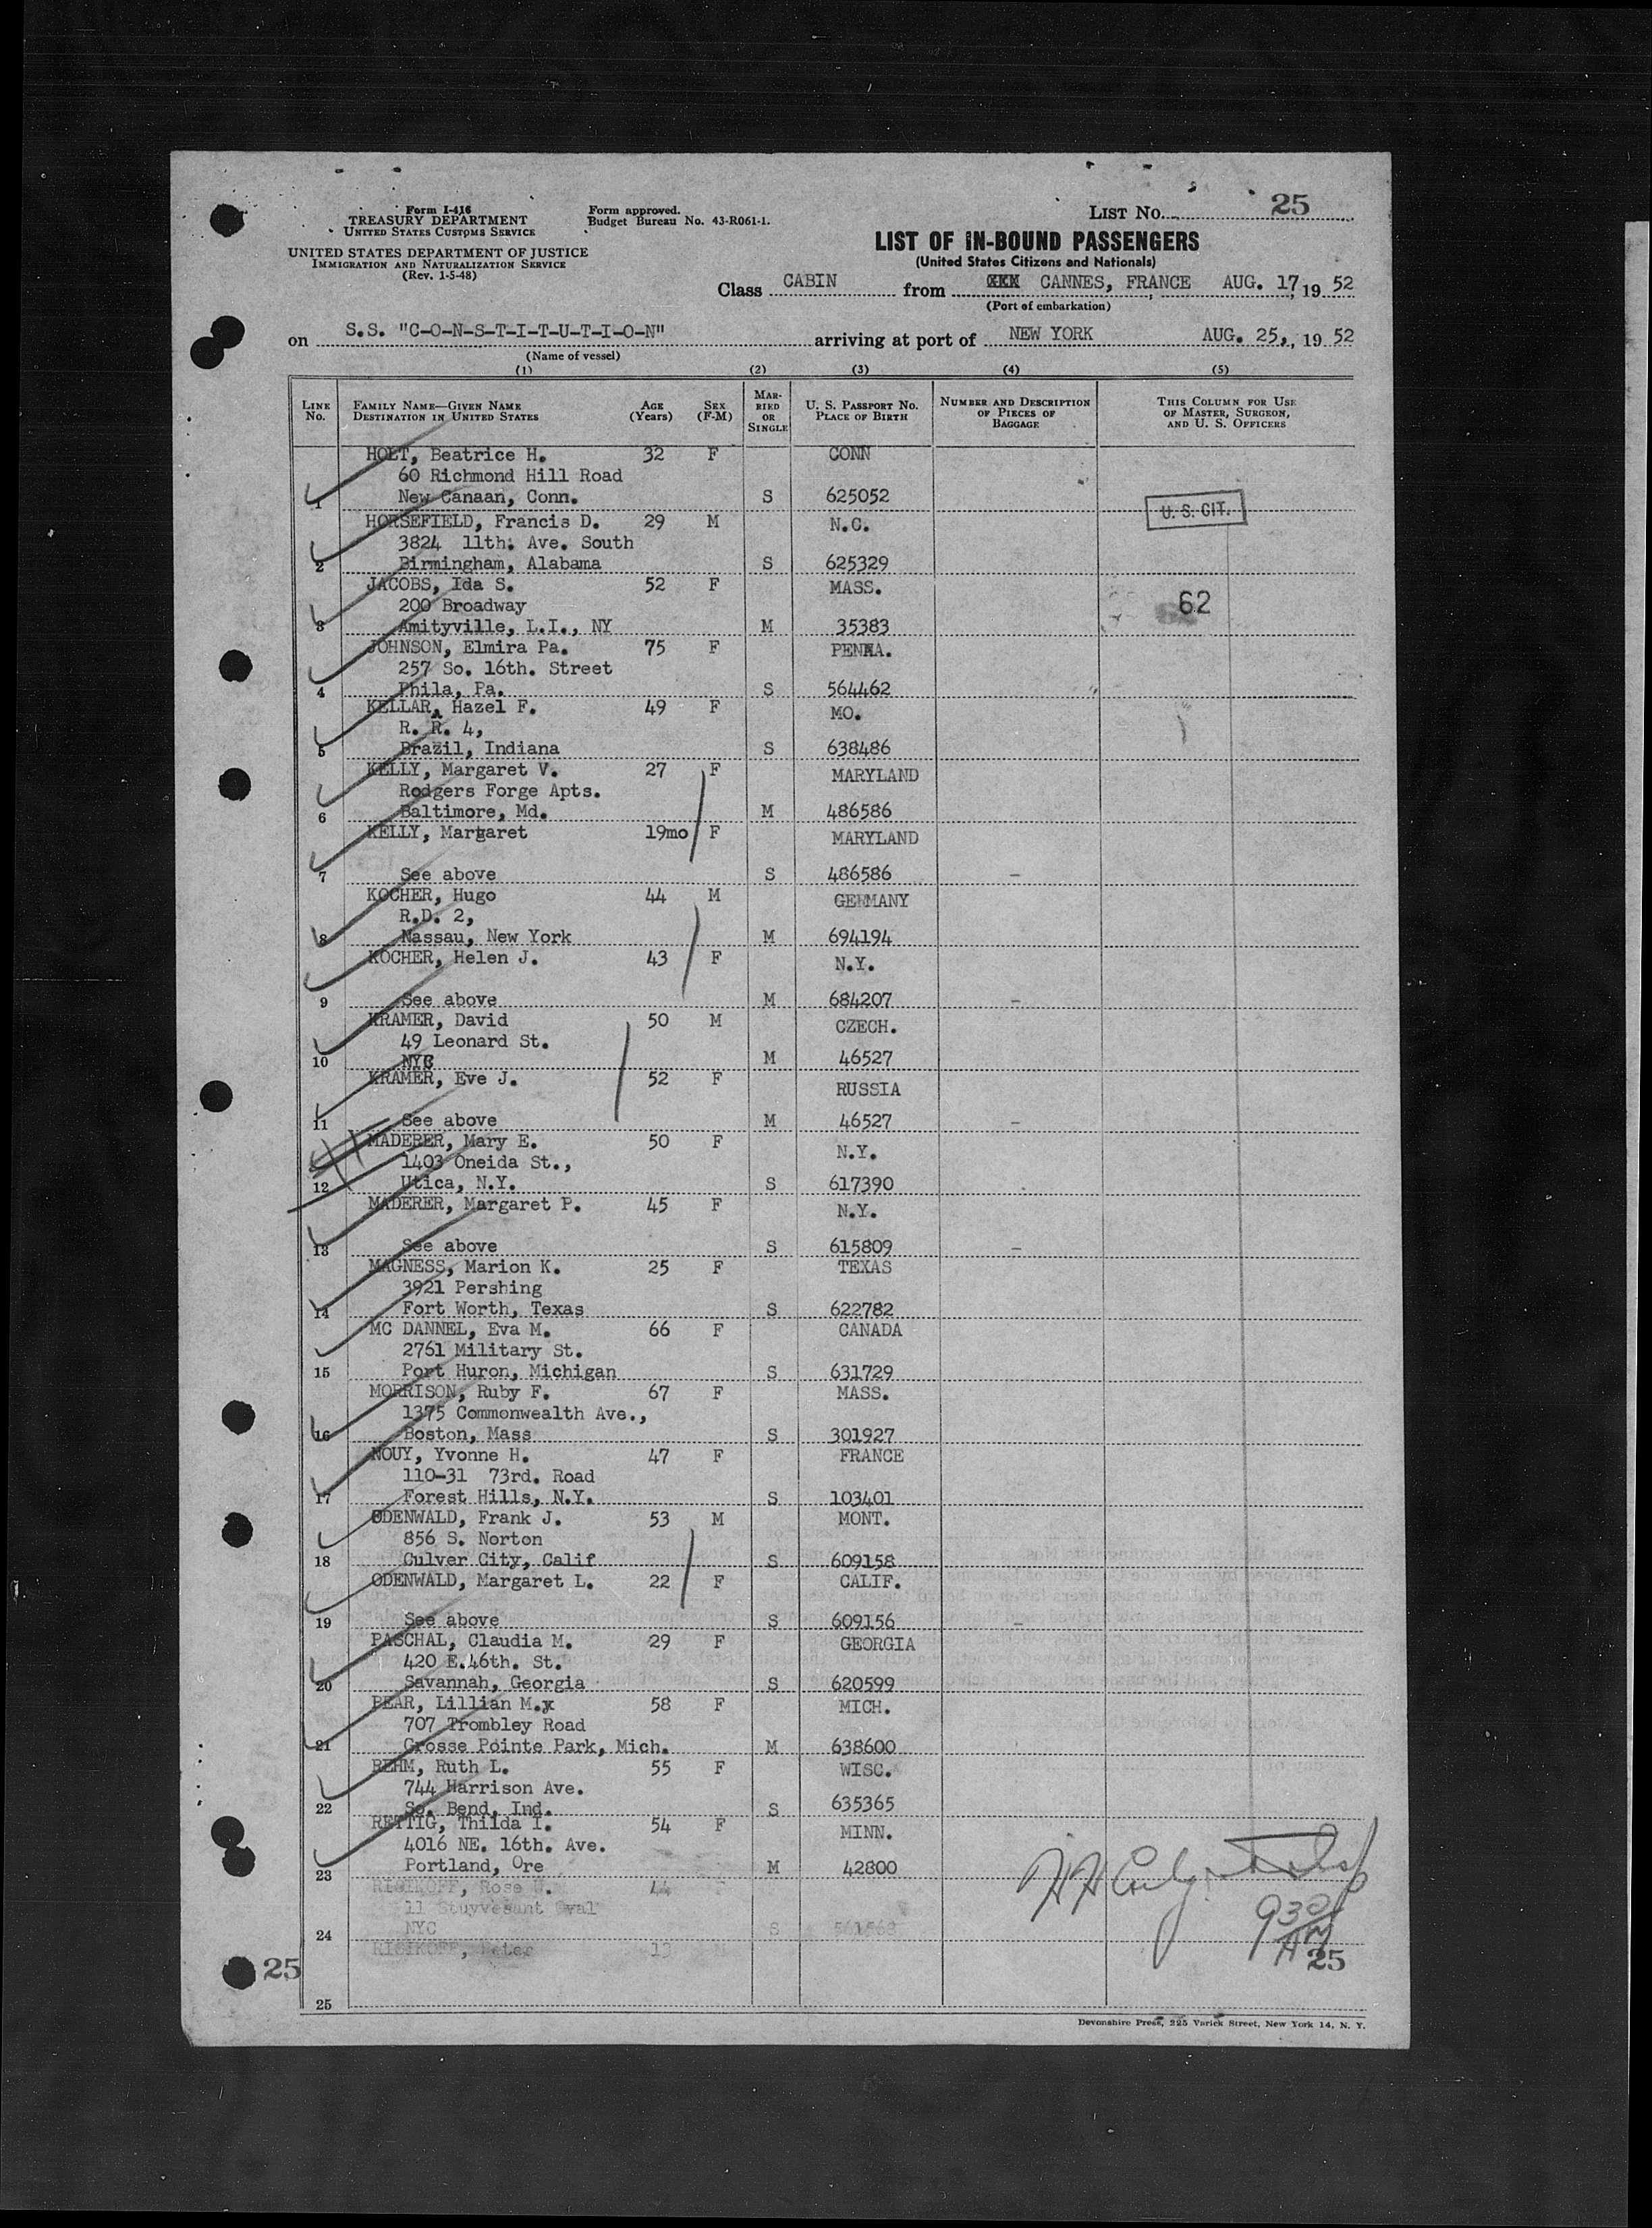 Form I-416
TREASURY DEPARTMENT
UNITED STATES CUSTOMS SERVICE
UNITED STATES DEPARTMENT OF JUSTICE
IMMIGRATION AND NATURALIZATION SERVICE
(Rev. 1-5-48)
Form approved.
Budget Bureau No. 43-R061-1.
LIST No. 25
LIST OF IN-BOUND PASSENGERS
(United States Citizens and Nationals)
Class CABIN from CANNES, FRANCE AUG. 17, 19 52
(Port of embarkation)
on S.S. "C-O-N-S-T-I-T-U-T-I-O-N" arriving at port of NEW YORK AUG. 25,, 19 52
(Name of vessel)
(1) (2) (3) (4) (5)
LINE No. FAMILY NAME—GIVEN NAME DESTINATION IN UNITED STATES AGE (Years) SEX (F-M) MARRIED OR SINGLE U. S. PASSPORT NO. PLACE OF BIRTH NUMBER AND DESCRIPTION OF PIECES OF BAGGAGE THIS COLUMN FOR USE OF MASTER, SURGEON, AND U. S. OFFICERS
HOLT, Beatrice H. 32 F CONN
60 Richmond Hill Road
1 New Canaan, Conn. S 625052
U. S. CIT.
HORSEFIELD, Francis D. 29 M N.C.
3824 11th. Ave. South
2 Birmingham, Alabama S 625329
JACOBS, Ida S. 52 F MASS.
200 Broadway 62
3 Amityville, L.I., NY M 35383
JOHNSON, Elmira Pa. 75 F PENNA.
257 So. 16th. Street
4 Phila, Pa. S 564462
KELLAR, Hazel F. 49 F MO.
R. R. 4,
5 Brazil, Indiana S 638486
KELLY, Margaret V. 27 F MARYLAND
Rodgers Forge Apts.
6 Baltimore, Md. M 486586
KELLY, Margaret 19mo F MARYLAND
7 See above S 486586 -
KOCHER, Hugo 44 M GERMANY
R.D. 2,
8 Nassau, New York M 694194
KOCHER, Helen J. 43 F N.Y.
9 See above M 684207 -
KRAMER, David 50 M CZECH.
49 Leonard St.
10 NYC M 46527
KRAMER, Eve J. 52 F RUSSIA
11 See above M 46527 -
MADERER, Mary E. 50 F N.Y.
1403 Oneida St.,
12 Utica, N.Y. S 617390
MADERER, Margaret P. 45 F N.Y.
13 See above S 615809 -
MAGNESS, Marion K. 25 F TEXAS
3921 Pershing
14 Fort Worth, Texas S 622782
MC DANNEL, Eva M. 66 F CANADA
2761 Military St.
15 Port Huron, Michigan S 631729
MORRISON, Ruby F. 67 F MASS.
1375 Commonwealth Ave.,
16 Boston, Mass S 301927
NOUY, Yvonne H. 47 F FRANCE
110-31 73rd. Road
17 Forest Hills, N.Y. S 103401
ODENWALD, Frank J. 53 M MONT.
856 S. Norton
18 Culver City, Calif S 609158
ODENWALD, Margaret L. 22 F CALIF.
19 See above S 609156 -
PASCHAL, Claudia M. 29 F GEORGIA
420 E.46th. St.
20 Savannah, Georgia S 620599
PEAR, Lillian M. 58 F MICH.
707 Trombley Road
21 Grosse Pointe Park, Mich. M 638600
REHM, Ruth L. 55 F WISC.
744 Harrison Ave.
22 So. Bend, Ind. S 635365
RETTIG, Thilda I. 54 F MINN.
4016 NE. 16th. Ave.
23 Portland, Ore M 42800
Rose 44 F
11 Stuyvesant Oval
24 NYC S
13
25 25
25
Devonshire Press, 225 Varick Street, New York 14, N. Y.